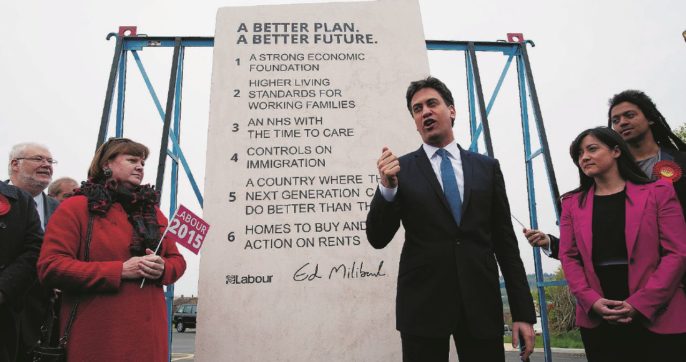 A BETTER PLAN.
A BETTER FUTURE.
1 A STRONG ECONOMIC
FOUNDATION
2 HIGHER LIVING
STANDARDS FOR
WORKING FAMILIES
3 AN NHS WITH
THE TIME TO CARE
4 CONTROLS ON
IMMIGRATION
5 A COUNTRY WHERE TH
NEXT GENERATION C
DO BETTER THAN TH
6 HOMES TO BUY AND
ACTION ON RENTS
Labour Ed Miliband
LABOUR
2015